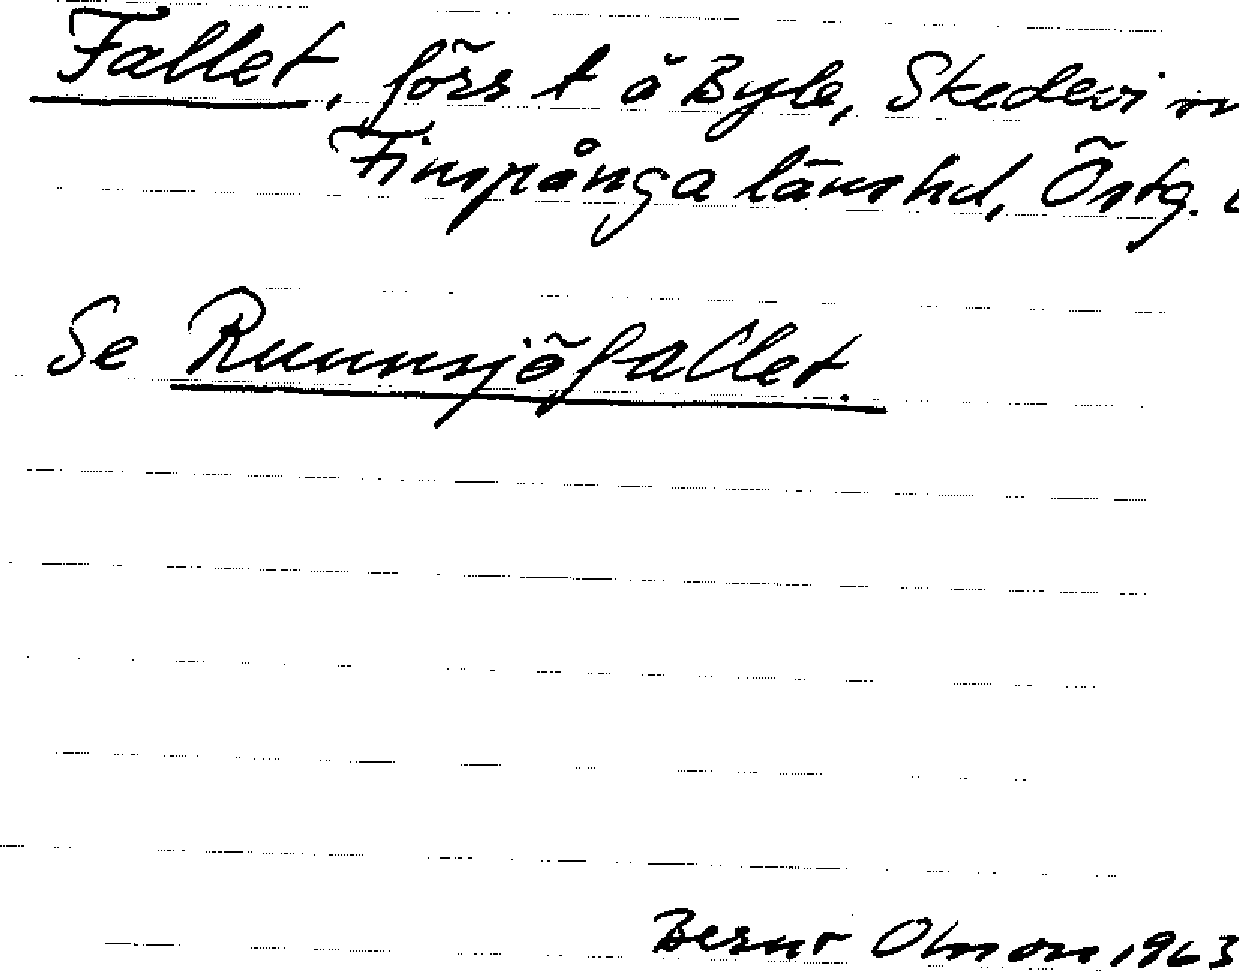 Fallet, förs t å Byle, Skedevi
Finspånga länshd, Östg.
Se Runnsjöfallet.
Bernt Olsson 1963